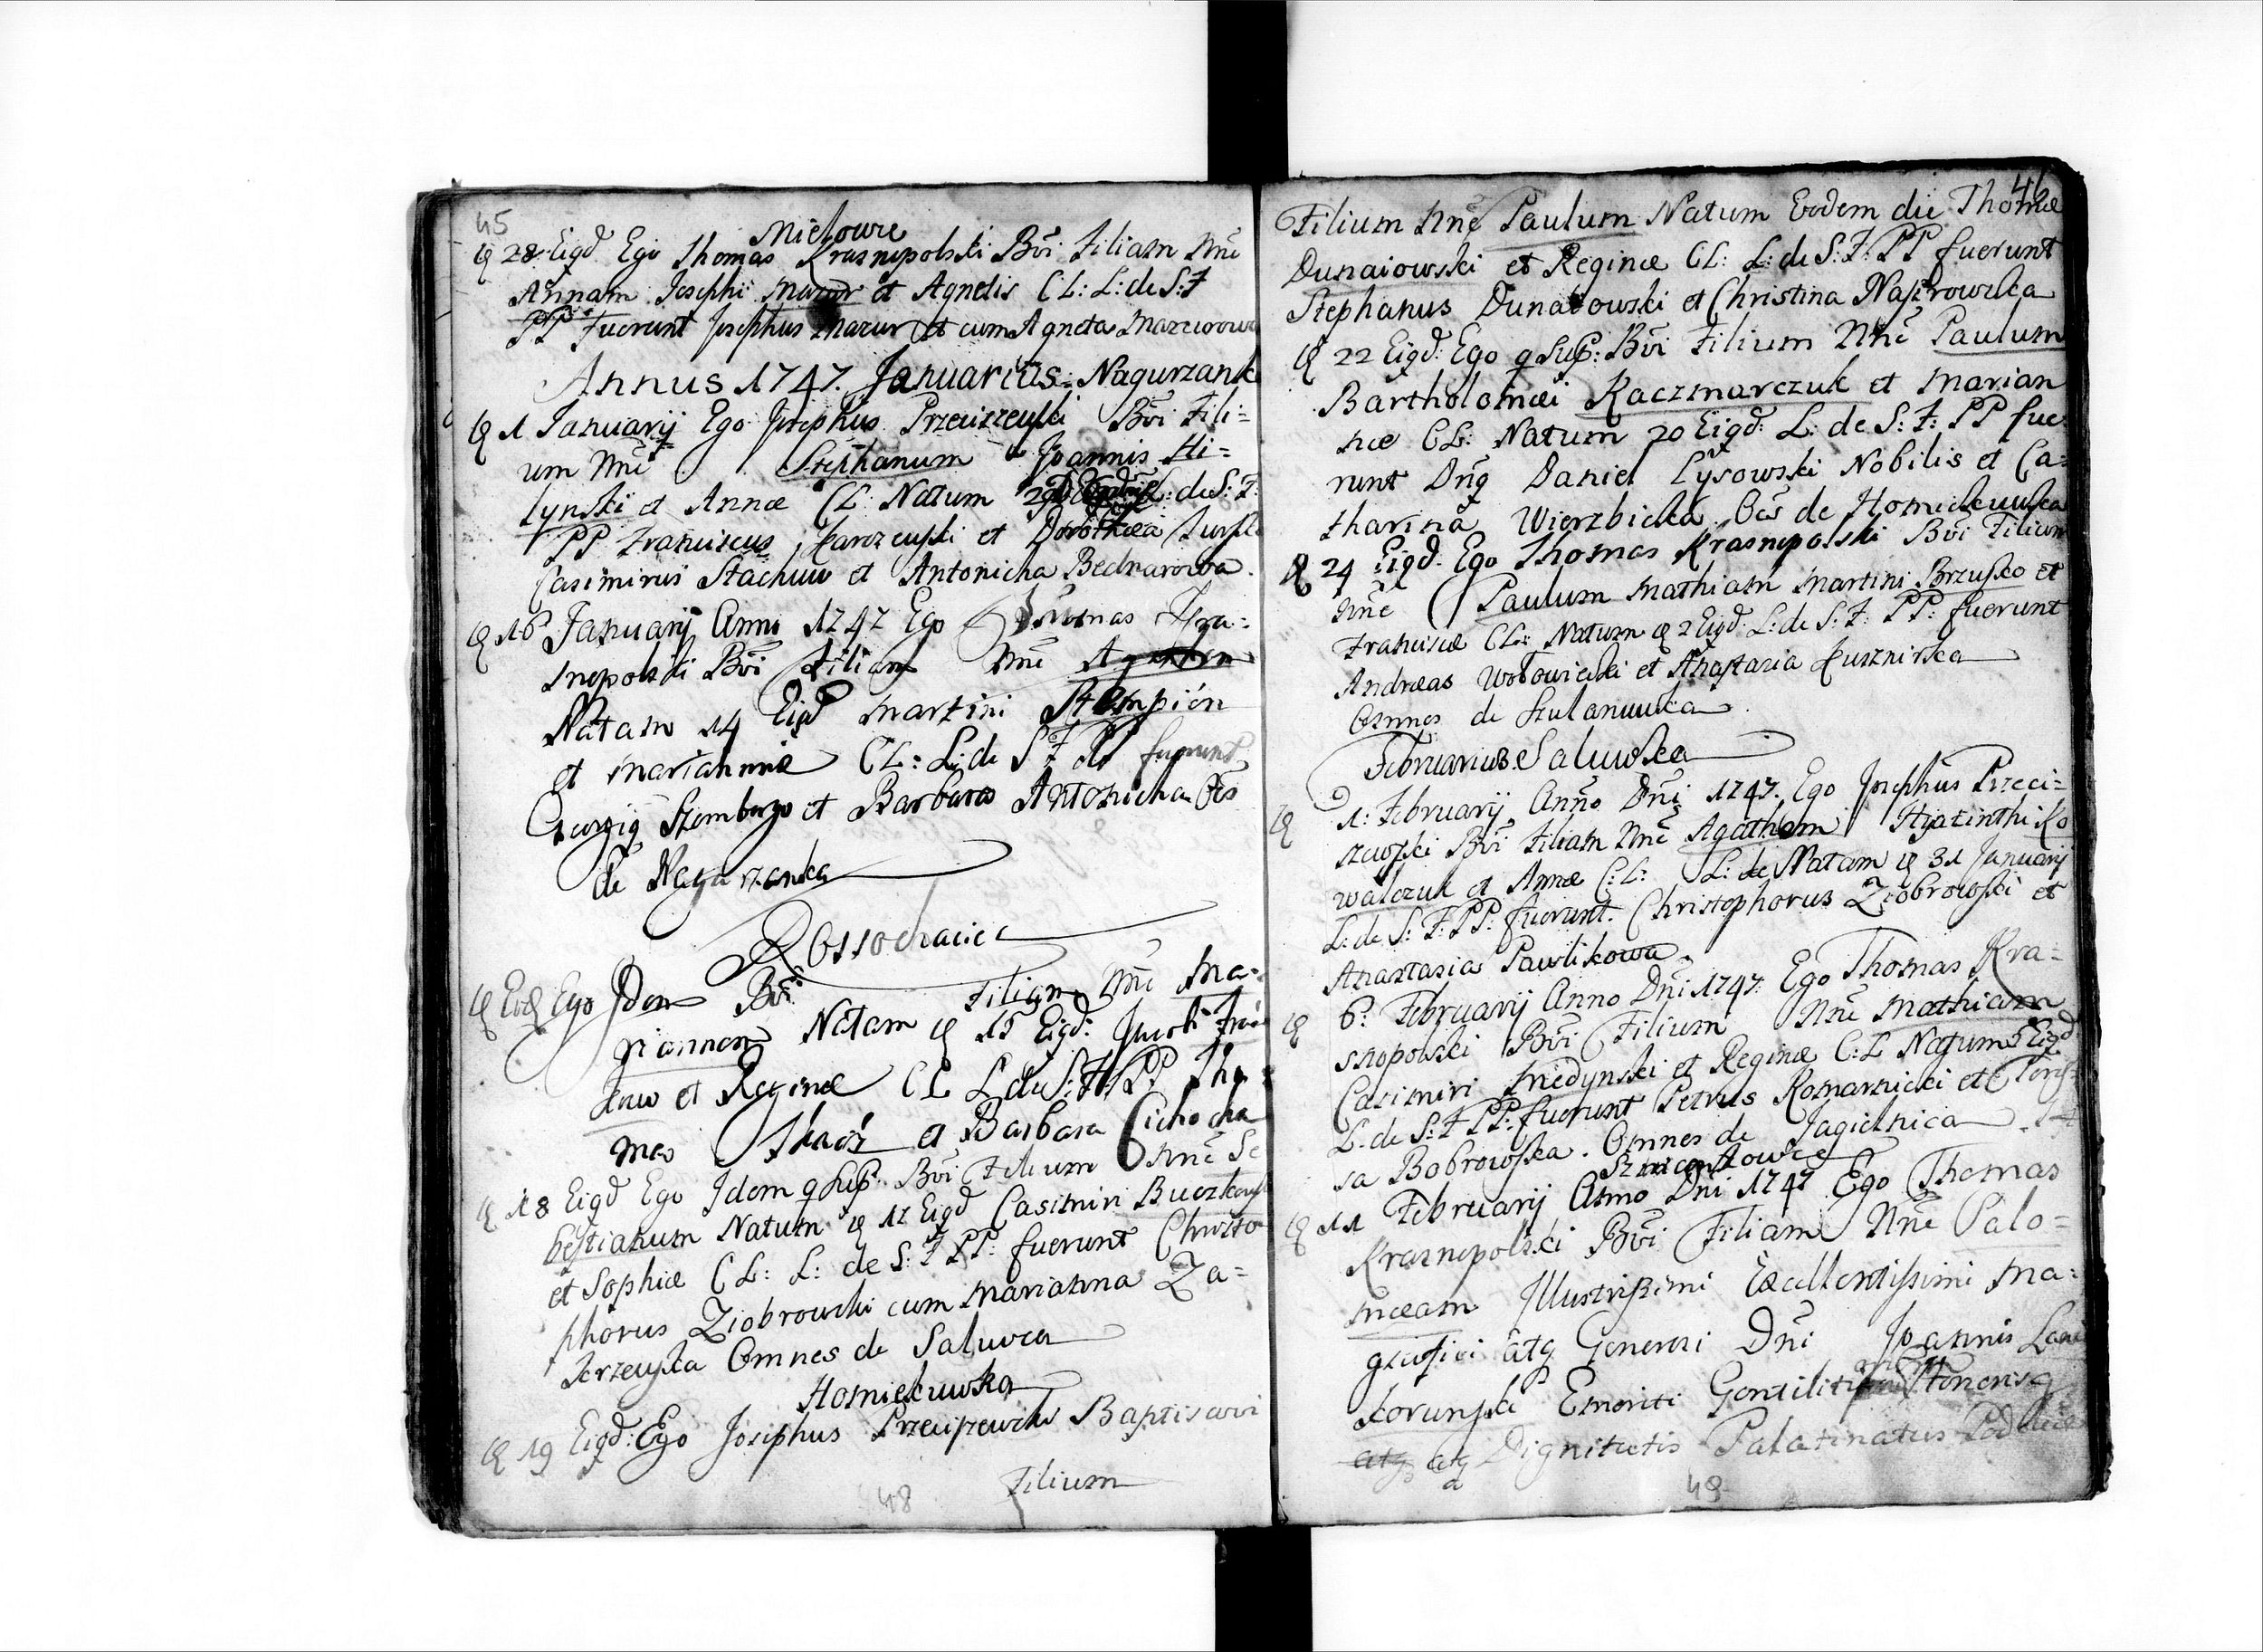 45
Mielowce
28 Eigd Ego Thomas Krasnopolski Bvi Filiam Nne
Annam Josephi Mazur et Agnetis CL: L: de S: F
PP Fuerunt Josephus Mazur et cum Agneta Mazurowa
Annus 1747. Januarius: Nagurzanka
1 Januarij Ego Josephus Przeciszewski Bvi Fili=
um Nne Stephanum Joannis Hi=
lynski et Annæ CL: Natum de S: F:
PP Franciscus et Dorothea
Casimirus Stachuw et Antonicha Bednarowa.
16 Januarij Anni 1747 Ego Thomas Kra=
snopolski Bvi Filiam Nne
Natam 14 Eigd Martini Stempien
et Mariannæ CL: L: de S F PP fuerunt
et Barbara Antonicha Oes
de Nagurzanka
Rossochaciec
Eod Ego Idem Bvi Filiam Nne Ma=
riannam Natam 15 Eigd: Jacobi
et Reginæ CL L de S: F: PP Tho=
mas et Barbara Cichocka
18 Eigd Ego Idem q Sup: Bvi Filium Nne Se
bestianum Natum 17 Eigd Casimiri
et Sophiæ CL: L: de S: F PP: fuerunt Christo
phorus Ziobrowski cum Marianna Za=
Omnes de Saluwca
Homiekuwka
19 Eigd: Ego Josephus Przeciszewski Baptisavi
Filium
48
46
Filium Nne Paulum Natum Eodem die Thomæ
Dunaiowski et Reginæ CL: L: de S: F: PP fuerunt
Stephanus Dunaiowski et Christina
22 Eigd: Ego q Sup: Bvi Filium Nne Paulum
Bartholomæi Kaczmarczuk et Marian
næ CL: Natum 20 Eigd: L: de S: F: PP fue
runt Dnq Daniel Lysowski Nobilis et Ca=
tharina Wierzbicka Oes de Homiekuwka
24 Eigd. Ego Thomas Krasnopolski Bvi Filium
Nne Paulum Mathiam Martini Brzusko et
Franciscæ CL: Natum 2 Eigd: L: de S: F: PP: fuerunt
Andræas Wołowiecki et Anastasia Kusznirka
Omnes de Szulanuwka
Februarius Saluwka
1: Februarij Anno Dni 1747. Ego Josephus Przeci=
szewski Bvi Filiam Nne Agatham Hyacinthi Ko
walczuk et Annæ C: L: L: de Natam 31 Januarij
L: de S: F: PP: fuerunt. Christophorus Ziobrowski et
Anastasia Pawlikowa
6: Februarij Anno Dni 1747. Ego Thomas Kra=
snopolski Bvi Filium Nne Mathiam
Casimiri Miedynski et Reginæ C: L Natum 5 Eigd
L. de S: F PP: fuerunt Petrus Komarnicki et There=
sa Bobrowska. Omnes de Jagielnica
11 Februarij Anno Dni 1747 Ego Thomas
Krasnopolski Bvi Filiam Nne Salo=
meam Illustrissimi Excellentissimi Ma=
gnifici atq Generosi Dni Joannis Lanc
korunski Emeriti Honoris q
atq atq Dignitatis Palatinatus Podoliæ
a
49